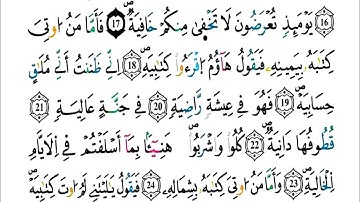 ⑯ يَوْمَئِذٍ تُعْرَضُونَ لَا تَخْفَىٰ مِنكُمْ خَافِيَةٌ ⑰ فَأَمَّا مَنْ اُوتِىَ
كِتَٰبَهُۥ بِيَمِينِهِۦ فَيَقُولُ هَآؤُمُ اقْرَءُوا كِتَٰبِيَهْ ⑱ إِنِّى ظَنَنتُ أَنِّى مُلَٰقٍ
حِسَابِيَهْ ⑲ فَهُوَ فِى عِيشَةٍ رَّاضِيَةٍ ⑳ فِى جَنَّةٍ عَالِيَةٍ ㉑
قُطُوفُهَا دَانِيَةٌ ㉒ كُلُوا وَاشْرَبُوا هَنِيٓـًٔا بِمَآ أَسْلَفْتُمْ فِى الْأَيَّامِ
الْخَالِيَةِ ㉓ وَأَمَّا مَنْ اُوتِىَ كِتَٰبَهُۥ بِشِمَالِهِۦ ㉔ فَيَقُولُ يَٰلَيْتَنِى لَمْ اُوتَ كِتَٰبِيَهْ